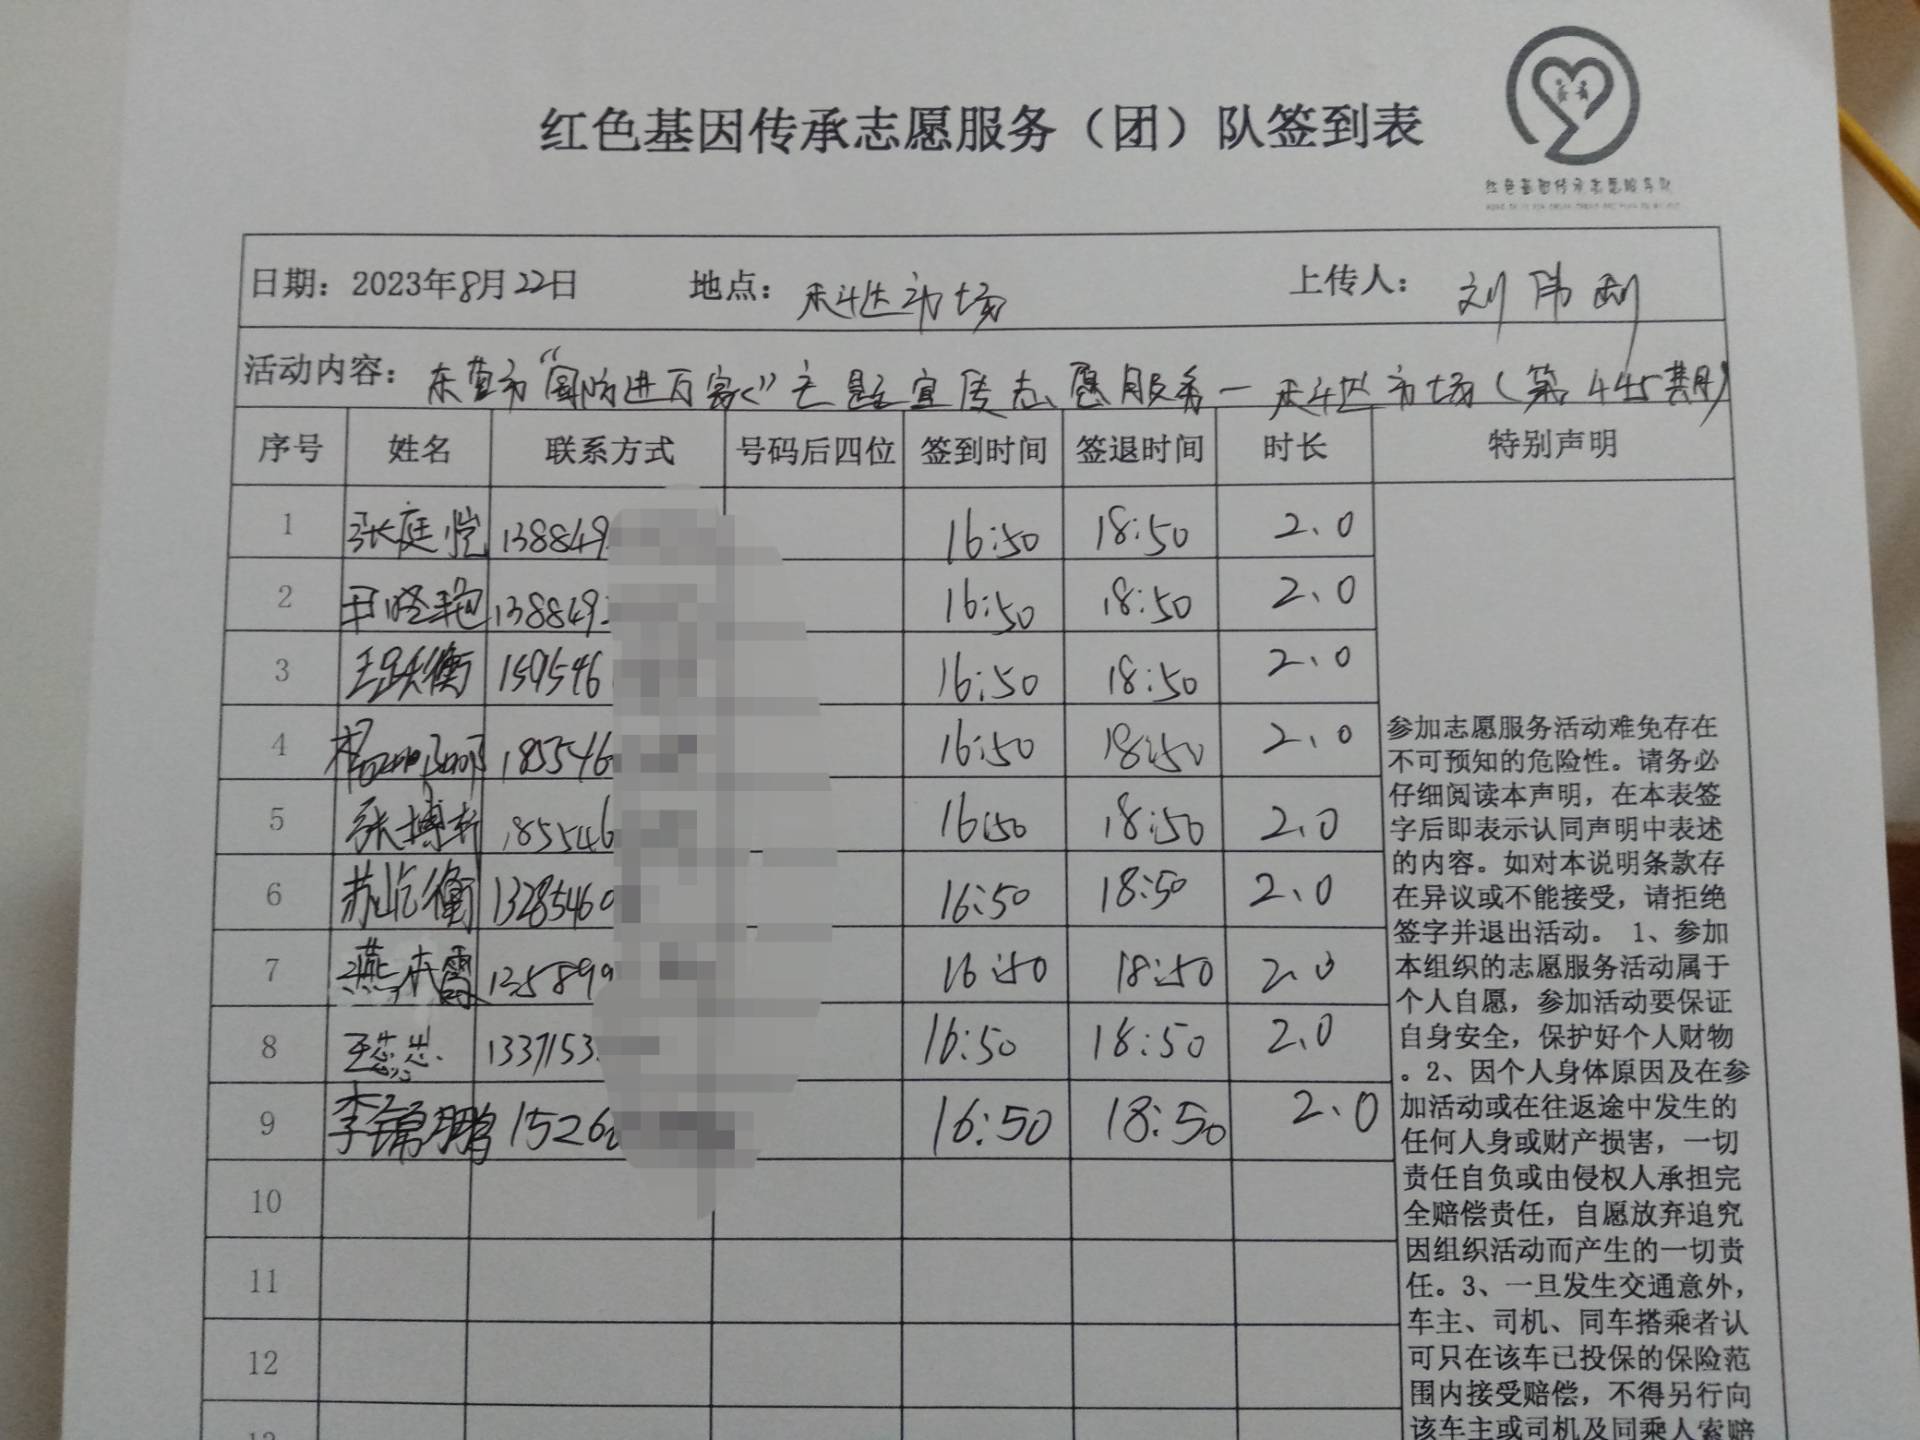 红色基因传承志愿服务（团）队签到表
红色基因传承志愿服务队
日期：2023年8月22日 地点： 市场 上传人：刘
活动内容：东营市“国防进万家”主题宣传志愿服务— 市场（第445期）
序号 姓名 联系方式 号码后四位 签到时间 签退时间 时长 特别声明
1 张庭恺 138849 16:50 18:50 2.0
2 138849 16:50 18:50 2.0
3 王跃衡 159546 16:50 18:50 2.0
4 杨 185546 16:50 18:50 2.0
5 张博轩 185546 16:50 18:50 2.0
6 苏屹衡 13285460 16:50 18:50 2.0
7 燕 135899 16:50 18:50 2.0
8 王蕊蕊 1337153 16:50 18:50 2.0
9 李锦鹏 1526 16:50 18:50 2.0
10
11
12
13
参加志愿服务活动难免存在
不可预知的危险性。请务必
仔细阅读本声明，在本表签
字后即表示认同声明中表述
的内容。如对本说明条款存
在异议或不能接受，请拒绝
签字并退出活动。 1、参加
本组织的志愿服务活动属于
个人自愿，参加活动要保证
自身安全，保护好个人财物
。2、因个人身体原因及在参
加活动或在往返途中发生的
任何人身或财产损害，一切
责任自负或由侵权人承担完
全赔偿责任，自愿放弃追究
因组织活动而产生的一切责
任。3、一旦发生交通意外，
车主、司机、同车搭乘者认
可只在该车已投保的保险范
围内接受赔偿，不得另行向
该车主或司机及同乘人索赔